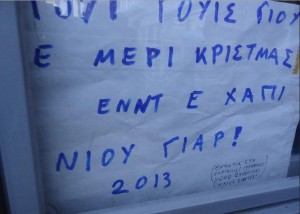 ΓΟΥΙ ΓΟΥΙΣ ΓΙΟΥ
Ε ΜΕΡΙ ΚΡΙΣΤΜΑΣ
ΕΝΝΤ Ε ΧΑΠΙ
ΝΙΟΥ ΓΙΑΡ!
2013